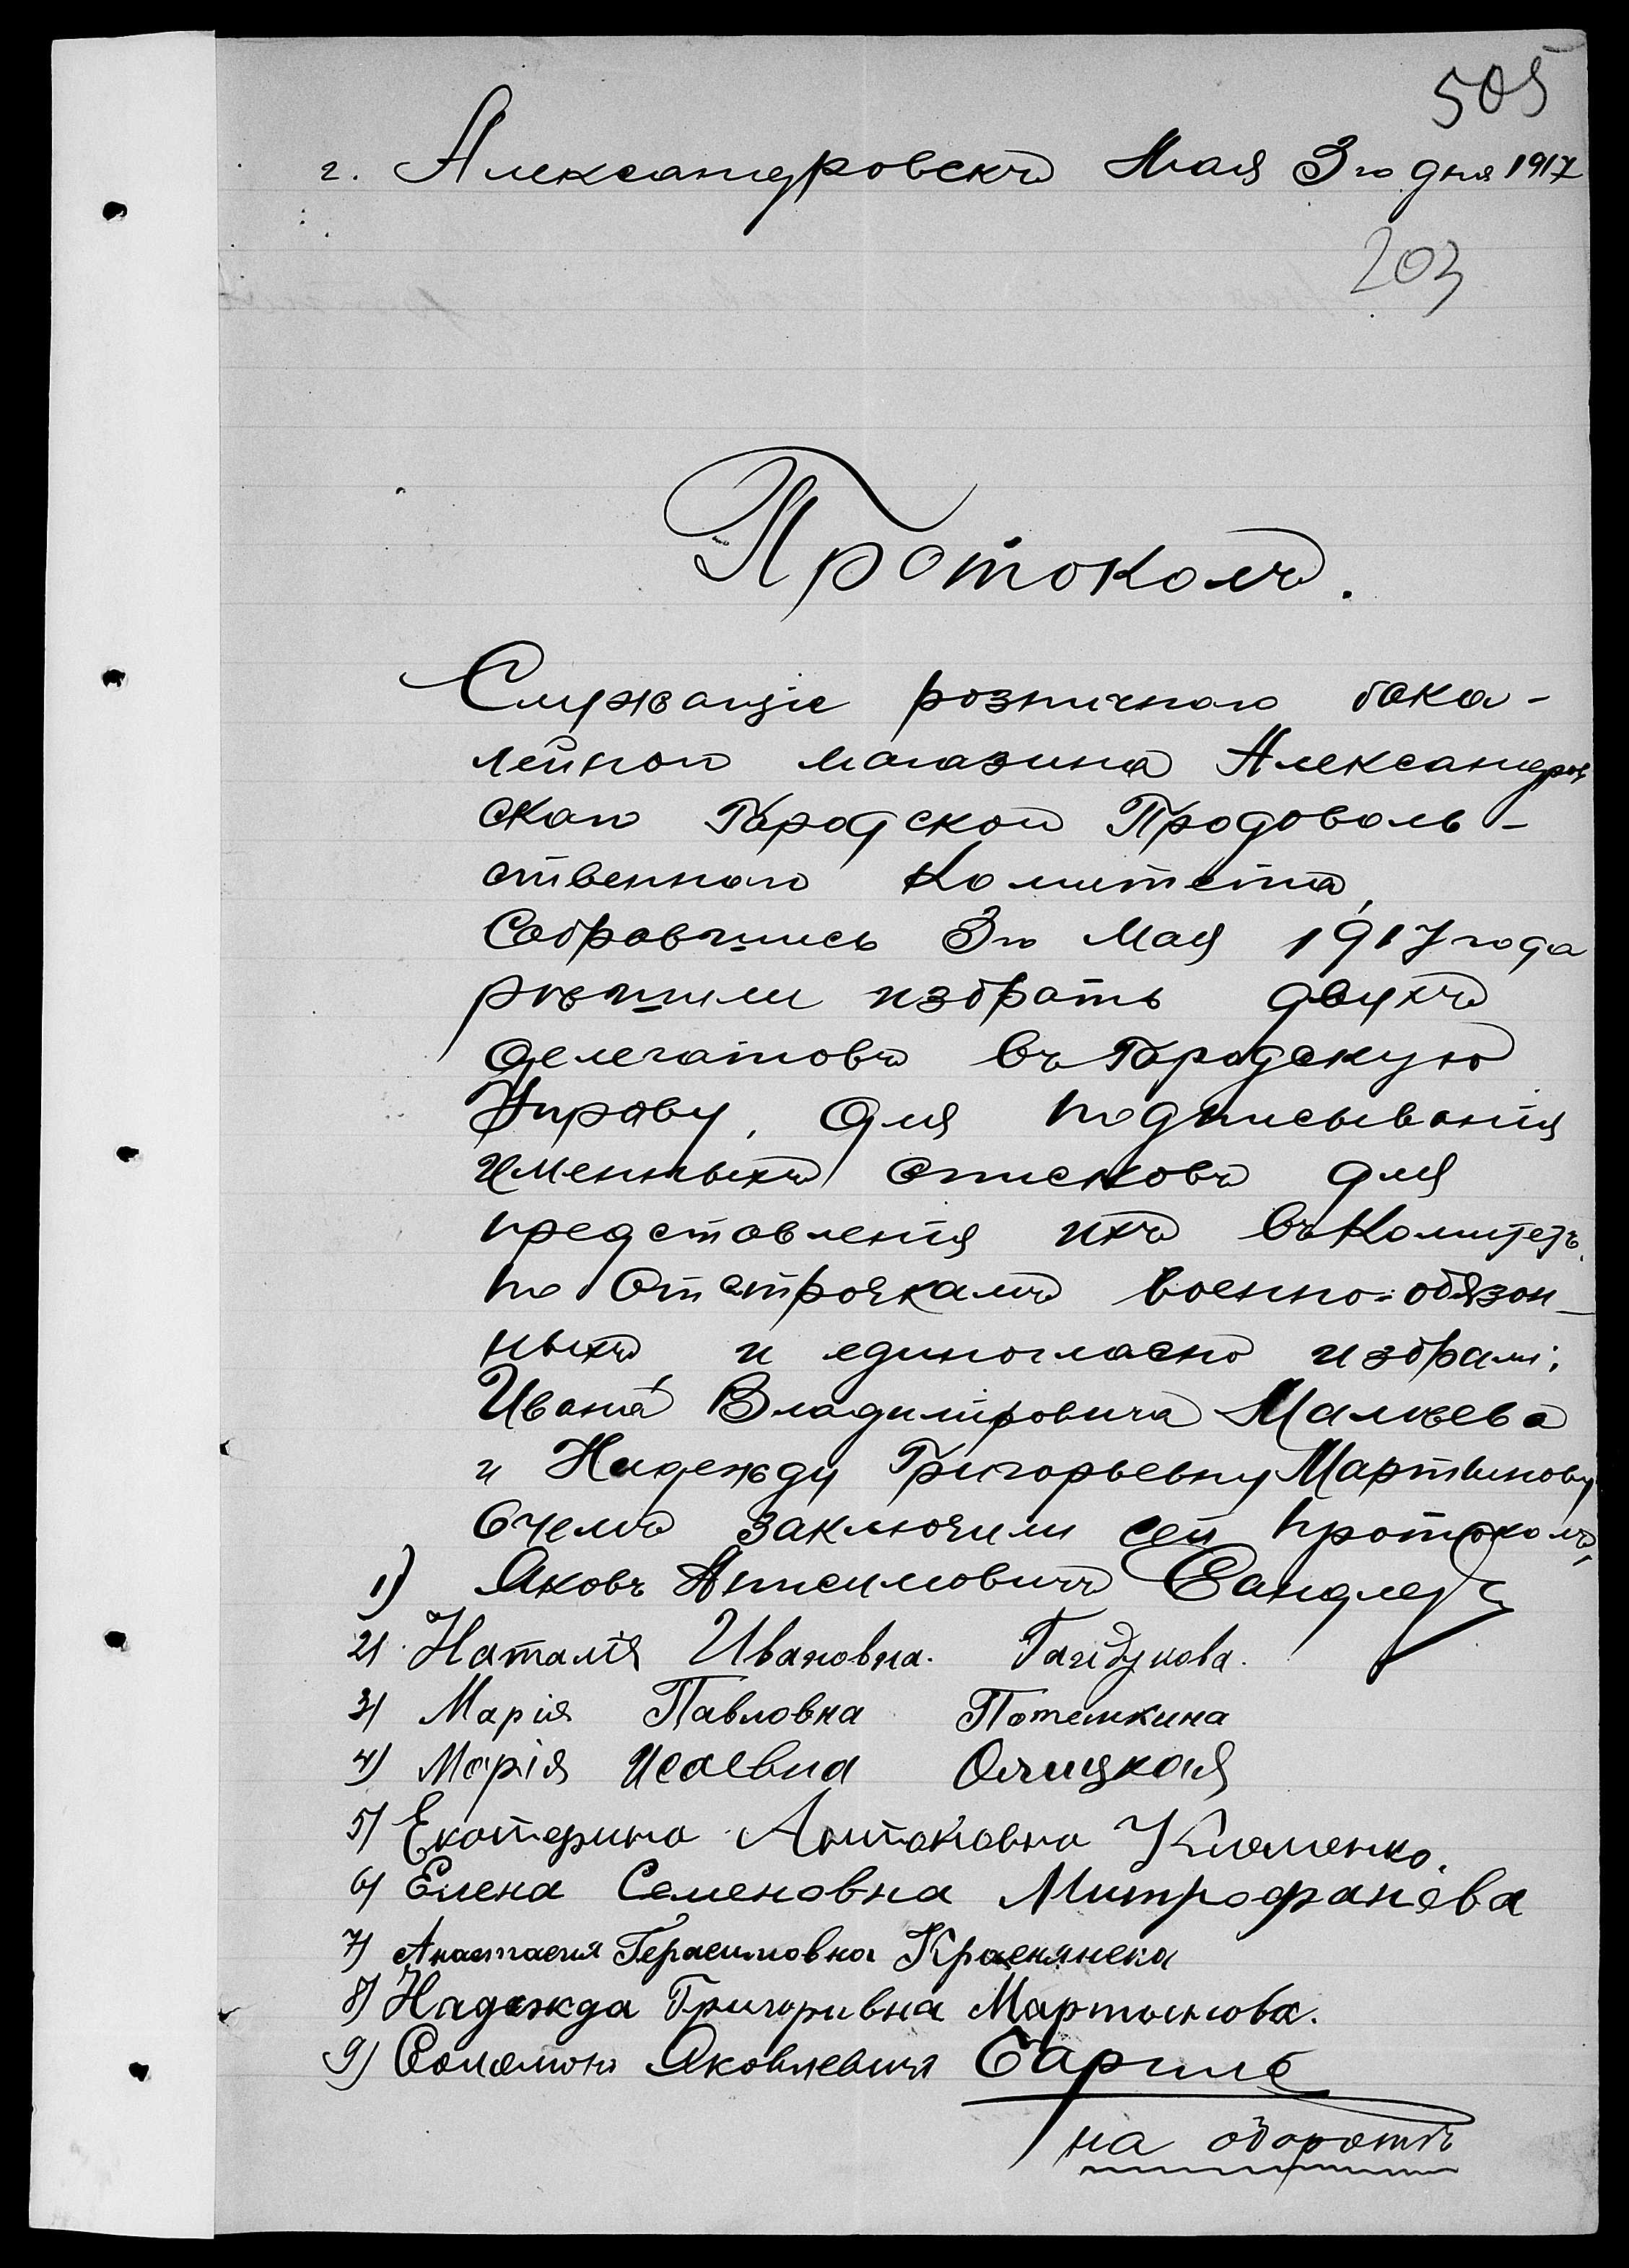 505
г. Александровскъ Мая 3го дня 1917
203
Протоколъ.
Служащіе розничного бака-
лейного магазина Александров
скаго Городского Продоволь-
ственного Комитета,
Собравшись 3го Мая 1917 года
рѣшили избрать двухъ
делегатовъ въ Городскую
Управу, для подписыванія
именныхъ списковъ для
представленія ихъ въ Комитетъ
по Отстрочкамъ военно-обязан-
ныхъ, и единогласно избрали:
Ивана Владиміровича Малѣева
и Надежду Григорьевну Мартынову
О чемъ заключили сей протоколъ,
1) Яковъ Анисимовичъ Сандлеръ
2) Наталія Ивановна
3) Марія Павловна Потемкина
4) Марія Исаевна Олицкая
5) Екатерина Антоновна Клеменко.
6) Елена Семеновна Митрофанова
7) Анастасия Герасимовна
8) Надежда Григоривна Мартынова.
9) Соломонъ Яковлевичъ
на оборотѣ